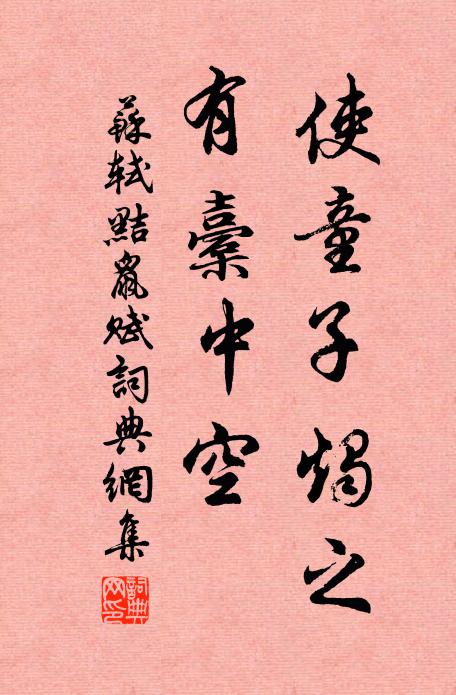 使童子燭之
有橐中空
蘇軾黠鼠賦詞典網集
詞典網印